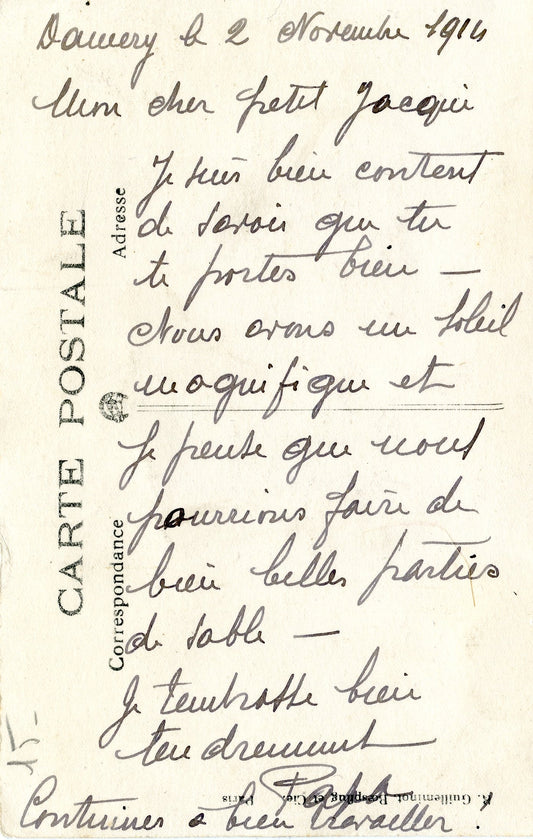 Damery le 2 Novembre 1914
Mon cher petit Jacqui
Je suis bien content
de savoir que tu
te portes bien —
Nous avons un soleil
magnifique et
je pense que nous
pourrions faire de
bien belles parties
de sable —
Je t'embrasse bien
tendrement
Continues à bien travailler !
CARTE POSTALE
Adresse
Correspondance
R. Guilleminot, Bœspflug et Cie. Paris
15-